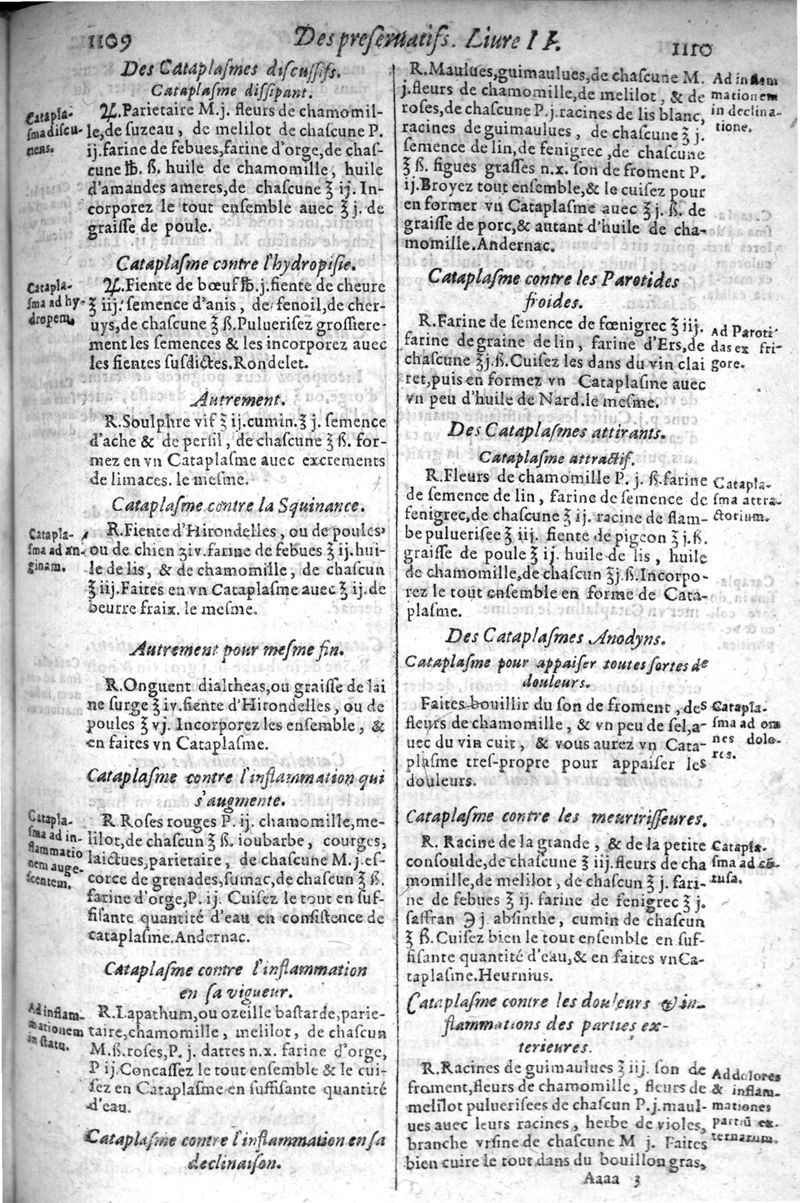 1109
Des preseruatifs. Liure II.
1110
Des Cataplaſmes diſcuſſifs.
Cataplaſme diſſipant.
Catapla-
ſma diſcu-
nens.
℞.Parietaire M.j. fleurs de chamomil-
le,de ſuzeau, de melilot de chaſcune P.
ij.farine de febues,farine d'orge,de chaſ-
cune ℔. ß. huile de chamomille, huile
d'amandes ameres,de chaſcune ℥ ij. In-
corporez le tout enſemble auec ℥ j. de
graiſſe de poule.
Cataplaſme contre l'hydropiſie.
Catapla-
ſma ad hy-
dropem.
℞.Fiente de bœuf ℔.j.fiente de cheure
℥ iij. ſemence d'anis, de fenoil,de cher-
uys,de chaſcune ℥ ß.Puluerifez groſſiere-
ment les ſemences & les incorporez auec
les fientes ſuſdictes.Rondelet.
Autrement.
R.Soulphre vif ℥ ij.cumin.℥ j. ſemence
d'ache & de perſil, de chaſcune ℥ ß. for-
mez en vn Cataplaſme auec excrements
de limaces. le meſme.
Cataplaſme contre la Squinance.
Catapla-
ſma ad an-
ginam.
R.Fiente d'Hirondelles, ou de poules
ou de chien ʒiv.farine de febues ℥ ij.hui-
le de lis, & de chamomille, de chaſcun
℥ iij.Faites en vn Cataplaſme auec ℥ ij.de
beurre fraix. le meſme.
Autrement pour meſme fin.
R.Onguent dialtheas,ou graiſſe de lai
ne ſurge ℥ iv.fiente d'Hirondelles, ou de
poules ℥ vj. Incorporez les enſemble, &
en faites vn Cataplaſme.
Cataplaſme contre l'inflammation qui
s'augmente.
Catapla-
ſma ad in-
flammatio
nem auge-
ſcentem.
R. Roſes rouges P. ij. chamomille,me-
lilot,de chaſcun ℥ ß. ioubarbe, courges,
laictues,parietaire, de chaſcune M.j.eſ-
corce de grenades,ſumac,de chaſcun ℥ ß.
farine d'orge,P. ij. Cuiſez le tout en ſuf-
fiſante quantité d'eau en conſiſtence de
cataplaſme.Andernac.
Cataplaſme contre l'inflammation
en ſa vigueur.
Ad inflam-
mationem
in ſtatu.
R.Lapathum,ou ozeille baſtarde,parie-
taire,chamomille, melilot, de chaſcun
M.ß.roſes,P.j. dattes n.x. farine d'orge,
P ij.Concaſſez le tout enſemble & le cui-
ſez en Cataplaſme en ſuffiſante quantité
d'eau.
Cataplaſme contre l'inflammation en ſa
declinaiſon.
R.Maulues,guimaulues,de chaſcune M.
j.fleurs de chamomille,de melilot, & de
roſes,de chaſcune P.j.racines de lis blanc,
racines de guimaulues, de chaſcune ℥ j.
ſemence de lin,de fenigrec,de chaſcune
℥ ß. figues graſſes n.x. ſon de froment P.
ij.Broyez tout enſemble,& le cuiſez pour
en former vn Cataplaſme auec ℥ j. ß. de
graiſſe de porc,& autant d'huile de cha-
momille.Andernac.
Ad inflam
mationem
in declina-
tione.
Cataplaſme contre les Parotides
froides.
R.Farine de ſemence de fœnigrec ℥ iij.
farine de graine de lin, farine d'Ers,de
chaſcune ℥j.ß.Cuiſez les dans du vin clai
ret,puis en formez vn Cataplaſme auec
vn peu d'huile de Nard.le meſme.
Ad Paroti-
das ex fri-
gore.
Des Cataplaſmes attirants.
Cataplaſme attractif.
R.Fleurs de chamomille P. j. ß.farine
de ſemence de lin, farine de ſemence de
fenigrec,de chaſcune ℥ ij. racine de flam-
be puluerifee ℥ iij. fiente de pigeon ℥ j.ß.
graiſſe de poule ℥ ij. huile de lis, huile
de chamomille,de chaſcun ℥j.ß.Incorpo-
rez le tout enſemble en forme de Cata-
plaſme.
Catapla-
ſma attra-
ctorium.
Des Cataplaſmes Anodyns.
Cataplaſme pour appaiſer toutes ſortes de
douleurs.
Faites bouillir du ſon de froment, des
fleurs de chamomille, & vn peu de ſel,a-
uec du vin cuit, & vous aurez vn Cata-
plaſme tres-propre pour appaiſer les
douleurs.
Catapla-
ſma ad om
nes dolo-
res.
Cataplaſme contre les meurtriſſeures.
R. Racine de la grande, & de la petite
conſoulde,de chaſcune ℥ iij.fleurs de cha
momille,de melilot, de chaſcun ℥ j. fari-
ne de febues ℥ ij. farine de fenigrec ℥ j.
ſaffran ℈ j. abſinthe, cumin de chaſcun
℥ ß.Cuiſez bien le tout enſemble en ſuf-
fiſante quantité d'eau,& en faites vn Ca-
taplaſme.Heurnius.
Catapla-
ſma ad cō-
tuſa.
Cataplaſme contre les douleurs & in-
flammations des parties ex-
terieures.
R.Racines de guimaulues ℥ iij. ſon de
froment,fleurs de chamomille, fleurs de
melilot puluerifees de chaſcun P.j.maul-
ues auec leurs racines, herbe de violes,
branche vrſine de chaſcune M j. Faites
bien cuire le tout dans du bouillon gras,
Ad dolores
& inflam-
mationes
partiū ex-
ternarum.
Aaaa 3